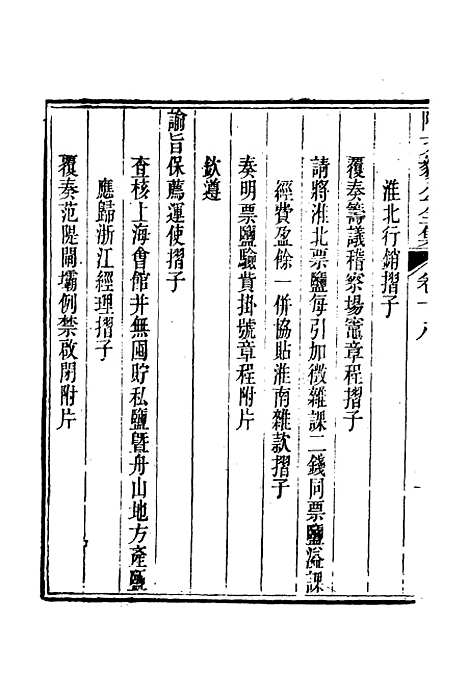 陶文毅公全集 卷十八
淮北行銷摺子
覆奏籌議稽察場竈章程摺子
請將淮北票鹽每引加徵雜課二錢同票鹽溢課
經費盈餘一併協貼淮南雜款摺子
奏明票鹽驗貲掛號章程附片
欽遵
諭旨保薦運使摺子
查核上海會館并無囤貯私鹽暨舟山地方產鹽
應歸浙江經理摺子
覆奏范隄閘壩例禁啟閉附片